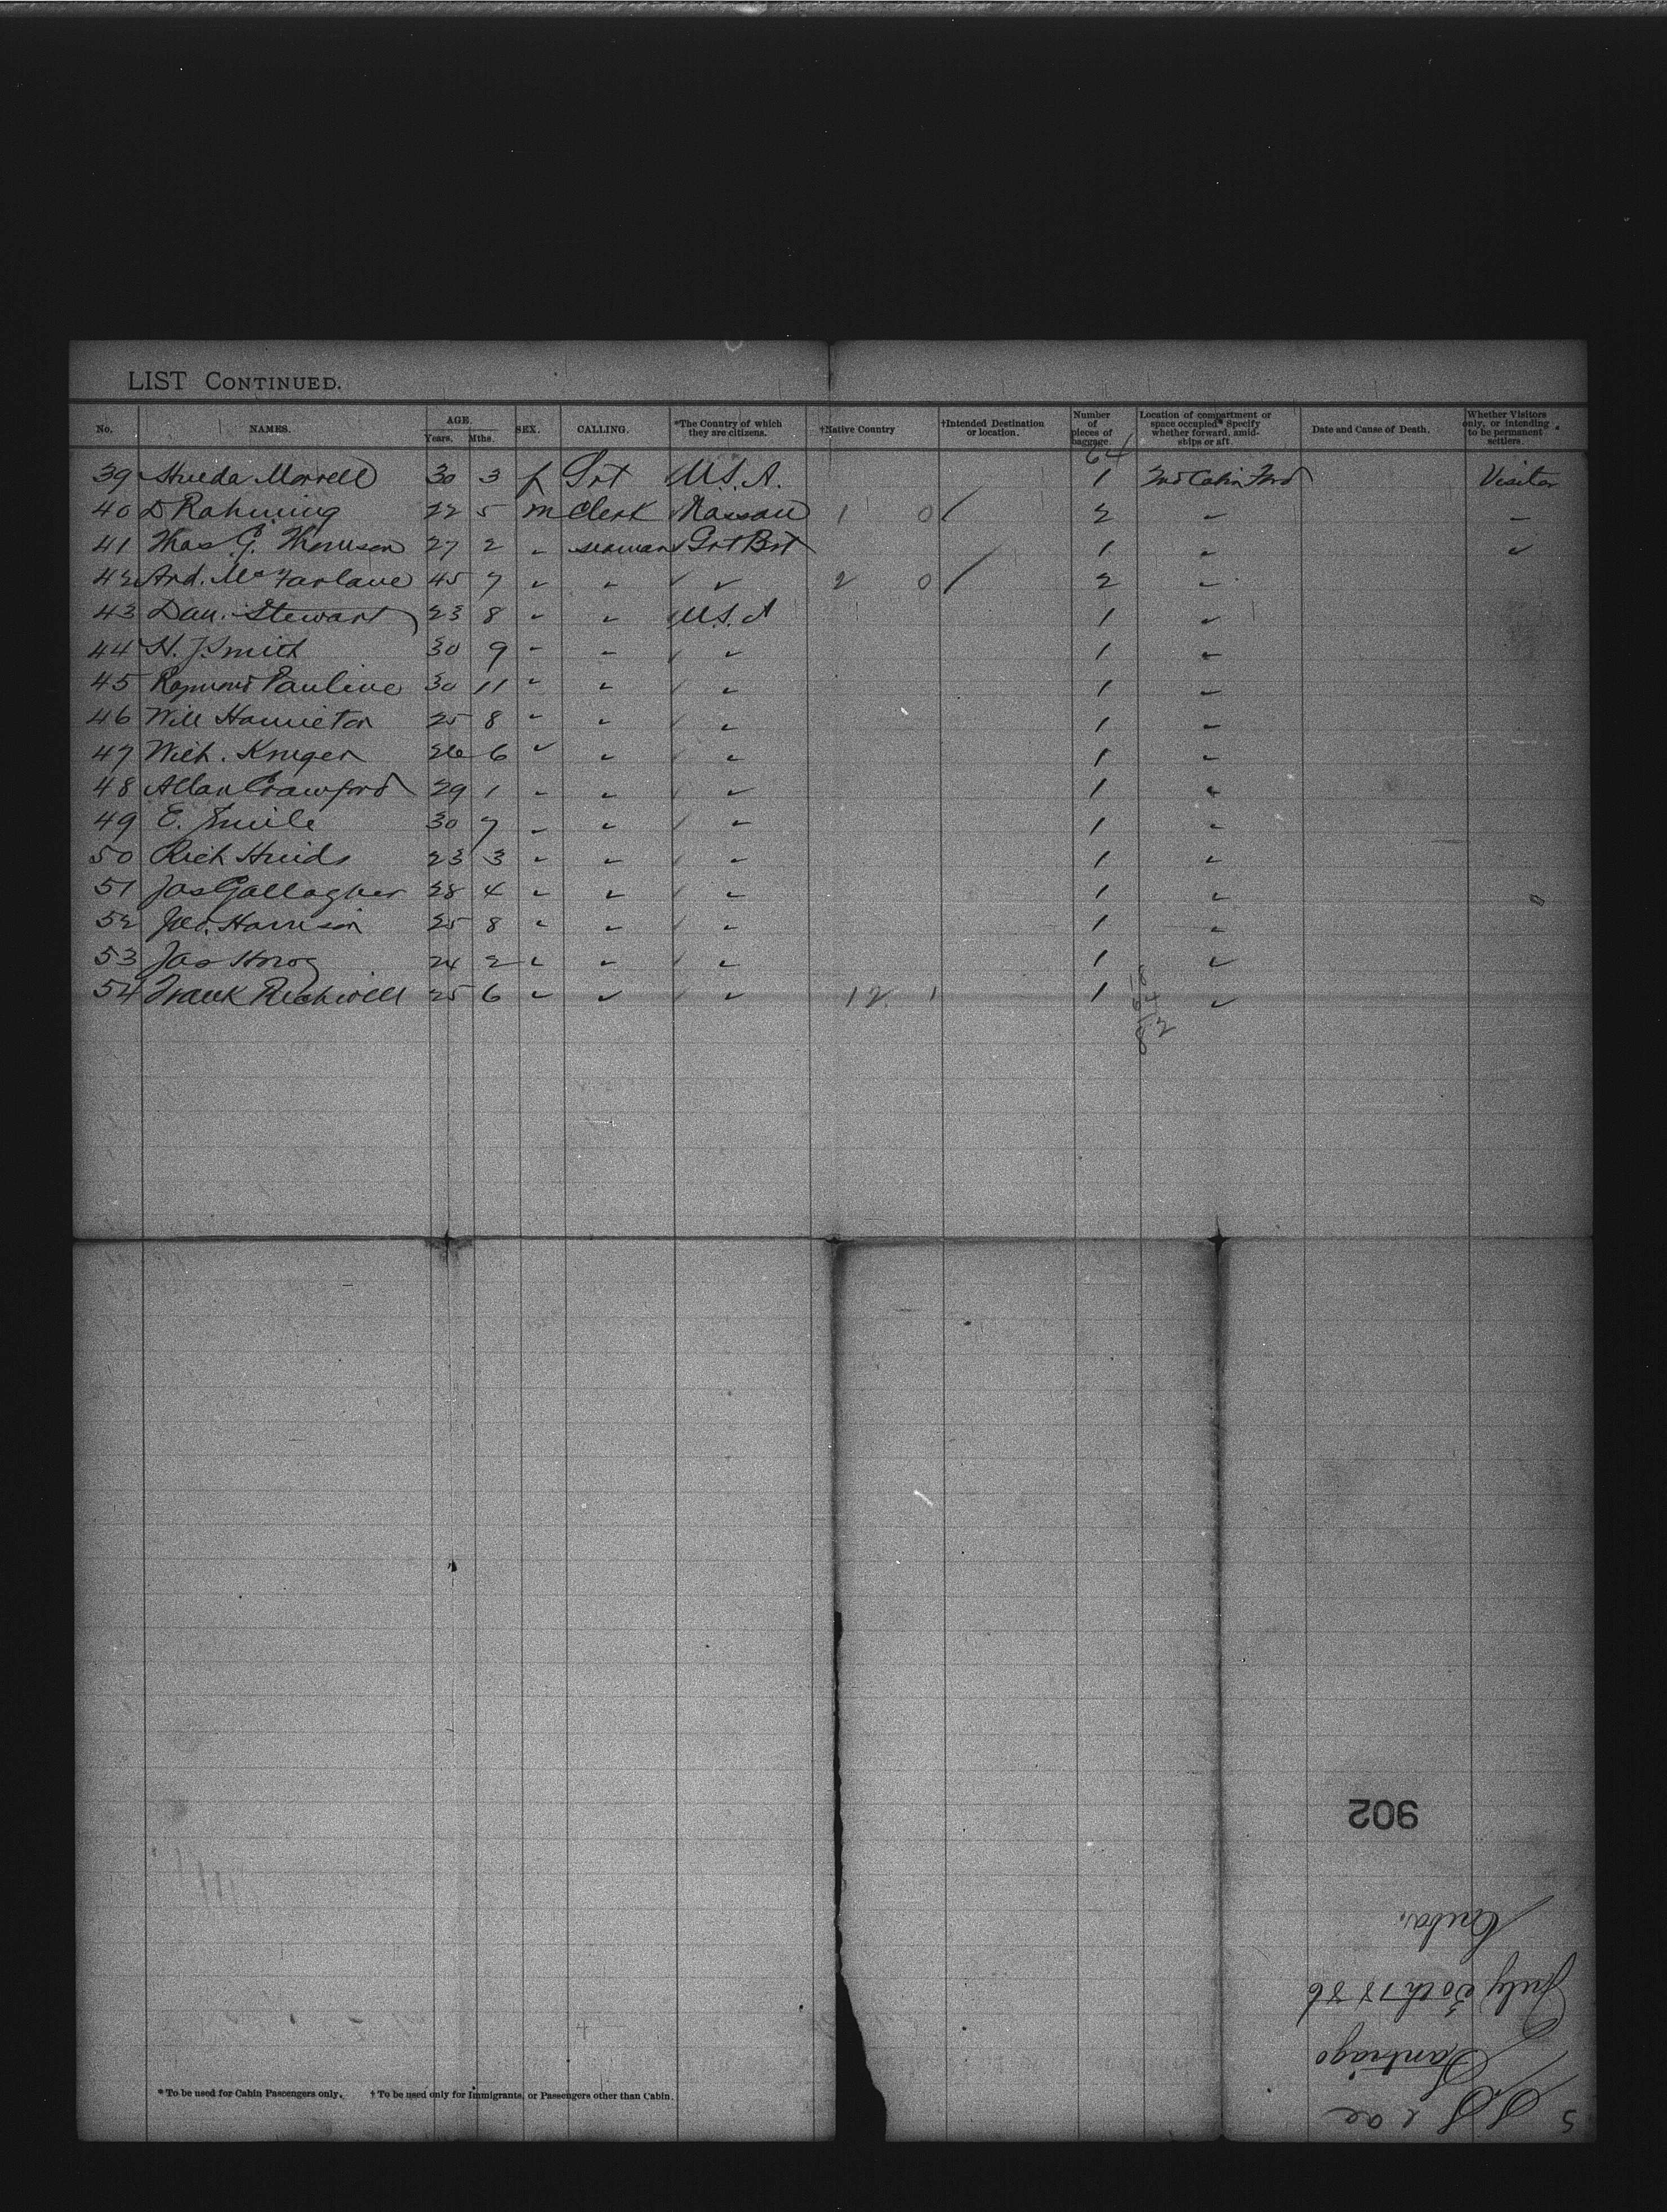 LIST CONTINUED.
No. NAMES. AGE. Years. Mths. SEX. CALLING. *The Country of which they are citizens. †Native Country †Intended Destination or location. Number of pieces of baggage Location of compartment or space occupied* Specify whether forward, amidships or aft Date and Cause of Death. Whether Visitors only, or intending to be permanent settlers.
64
39 Morrell 30 3 f U.S.A. 1 2nd Cabin Ford Visitor
40 D Rahming 22 5 m Clerk Nassau 1 0 / 2 " "
41 Thos G. Thomson 27 2 " seaman Grt Brt 1 " "
42 And. McFarlane 45 7 " " " 2 0 / 2 "
43 Dan. Stewart 23 8 " " U.S.A 1 "
44 H. J. Smith 30 9 " " " 1 "
45 Raymond Pauline 30 11 " " " 1 "
46 Will Hamilton 25 8 " " " 1 "
47 Wilh. Kruger 26 6 " " " 1 "
48 Allan Crawford 29 1 " " " 1 "
49 E. Emile 30 7 " " " 1 "
50 Rich Hinds 23 3 " " " 1 "
51 Jas Gallagher 28 4 " " " 1 "
52 Harrison 25 8 " " " 1 "
53 Jas 24 2 " " " 1 "
54 Frank Richwell 25 6 " " " 12 1 1 "
902
S.S.
Santiago
July 30th 1886
Cuba.
* To be used for Cabin Passengers only. † To be used only for Immigrants, or Passengers other than Cabin.